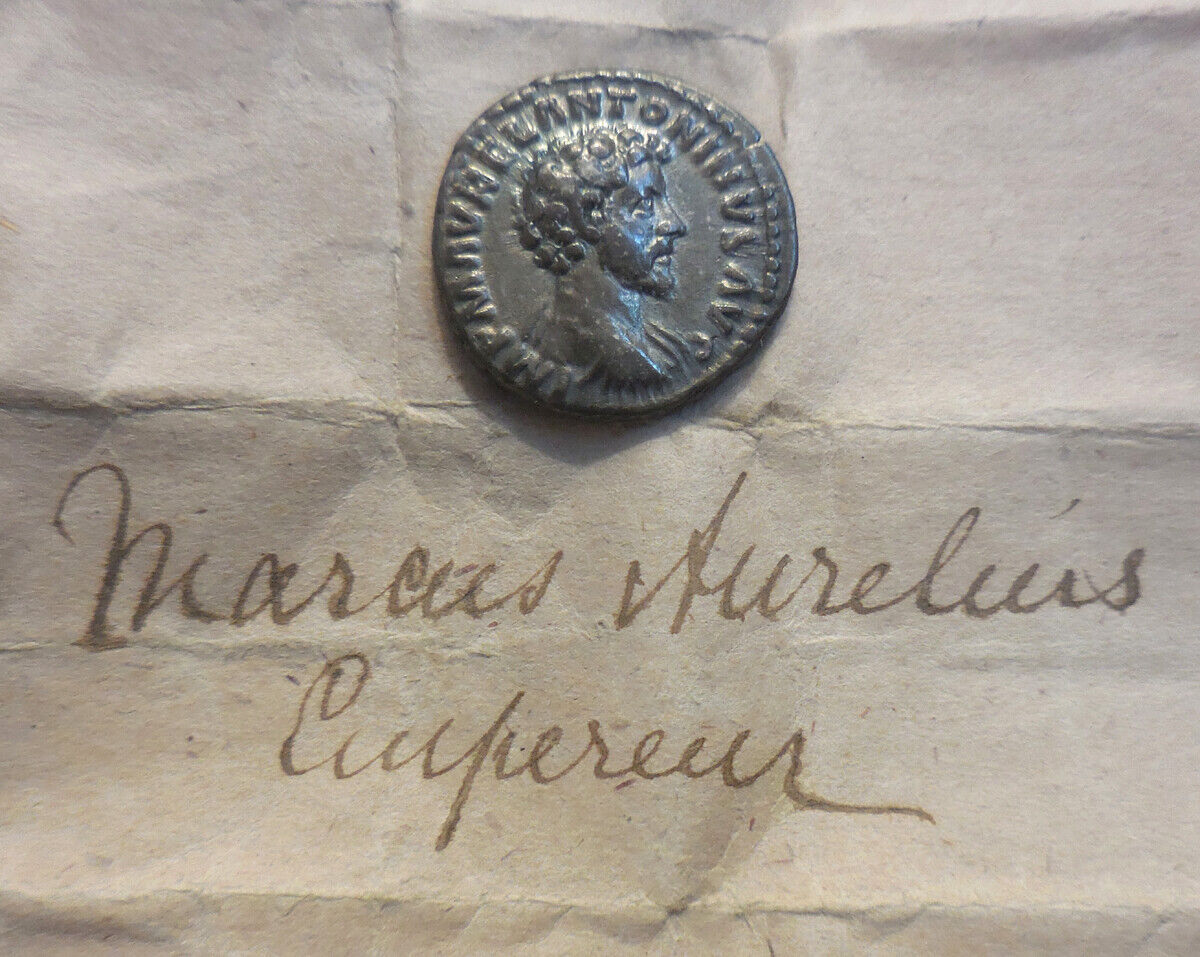 IMP M AVREL ANTONINVS AVG
Marcus Aurelius
Empereur